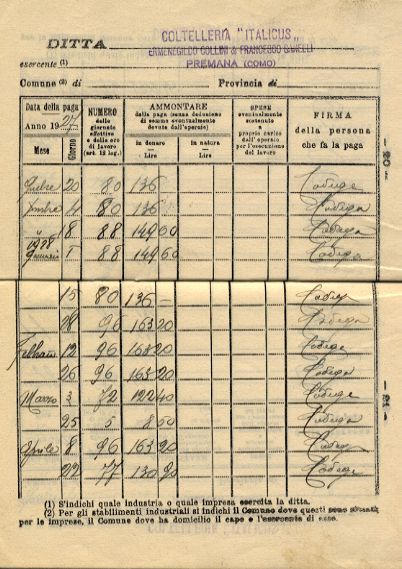 DITTA COLTELLERIA "ITALICUS"
ERMENEGILDO GOLLINI & FRANCESCO
PREMANA (COMO)
esercente (1)
Comune (2) di Provincia di
Data della paga
Anno 1927
Mese Giorno
NUMERO
delle giornate
effettive
e delle ore
di lavoro
(art. 12 leg.)
AMMONTARE
della paga (senza deduzione
di somme eventualmente
dovute dall'operaio)
in denaro in natura
Lire Lire
SPESE
eventualmente
sostenute
a proprio carico
dall'operaio
per l'esecuzione
del lavoro
FIRMA
della persona
che fa la paga
20 80 136 Codega
4 80 136 Codega
18 88 149 60 Codega
1928
1 88 149 60 Codega
— 20 —
15 80 136 — Codega
28 96 163 20 Codega
Febbraio 12 96 163 20 Codega
26 96 163 20 Codega
Marzo 3 72 122 40 Codega
25 5 8 50 Codega
Aprile 8 96 163 20 Codega
22 77 130 90 Codega
— 21 —
(1) S'indichi quale industria o quale impresa esercita la ditta.
(2) Per gli stabilimenti industriali si indichi il Comune dove questi sono situati;
per le imprese, il Comune dove ha domicilio il capo e l'esercente di esse.